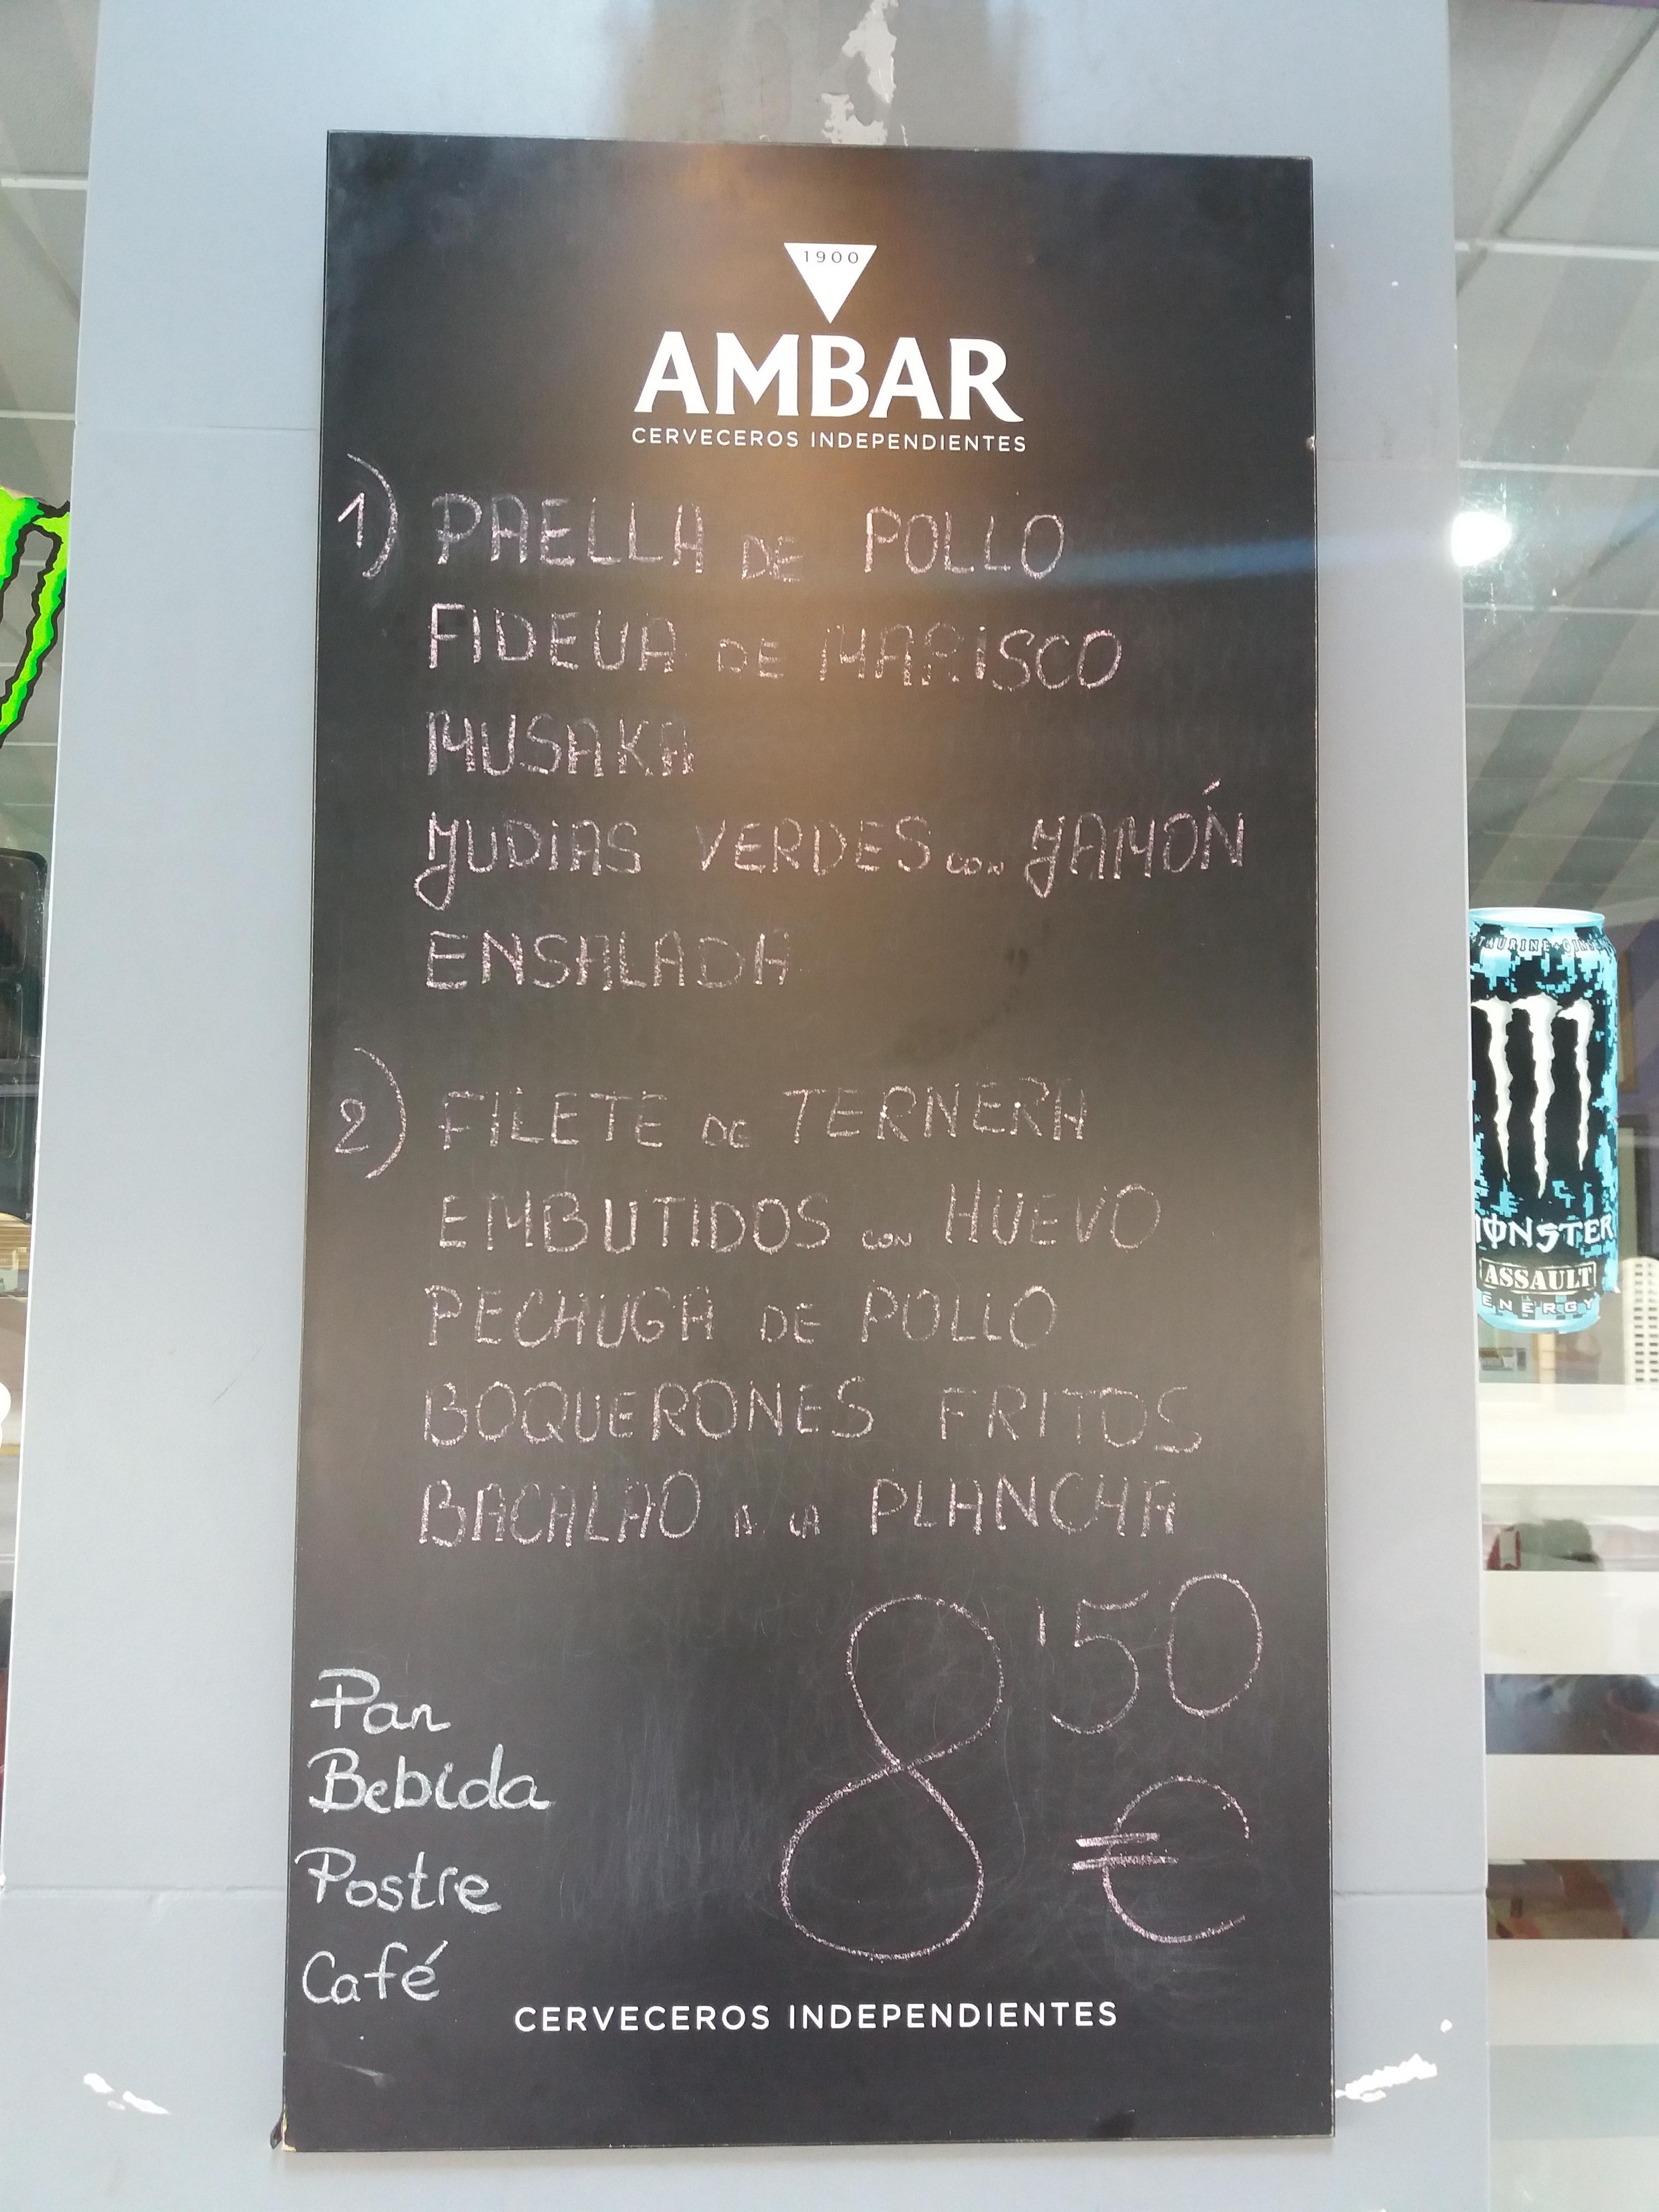 1900
AMBAR
CERVECEROS INDEPENDIENTES
1) PAELLA DE POLLO
FIDEUA DE MARISCO
MUSAKA
JUDIAS VERDES con JAMÓN
ENSALADA
2) FILETE DE TERNERA
EMBUTIDOS con HUEVO
PECHUGA DE POLLO
BOQUERONES FRITOS
BACALAO A LA PLANCHA
8'50
€
Pan
Bebida
Postre
Café
CERVECEROS INDEPENDIENTES
TAURINE+
MONSTER
ASSAULT
ENERGY